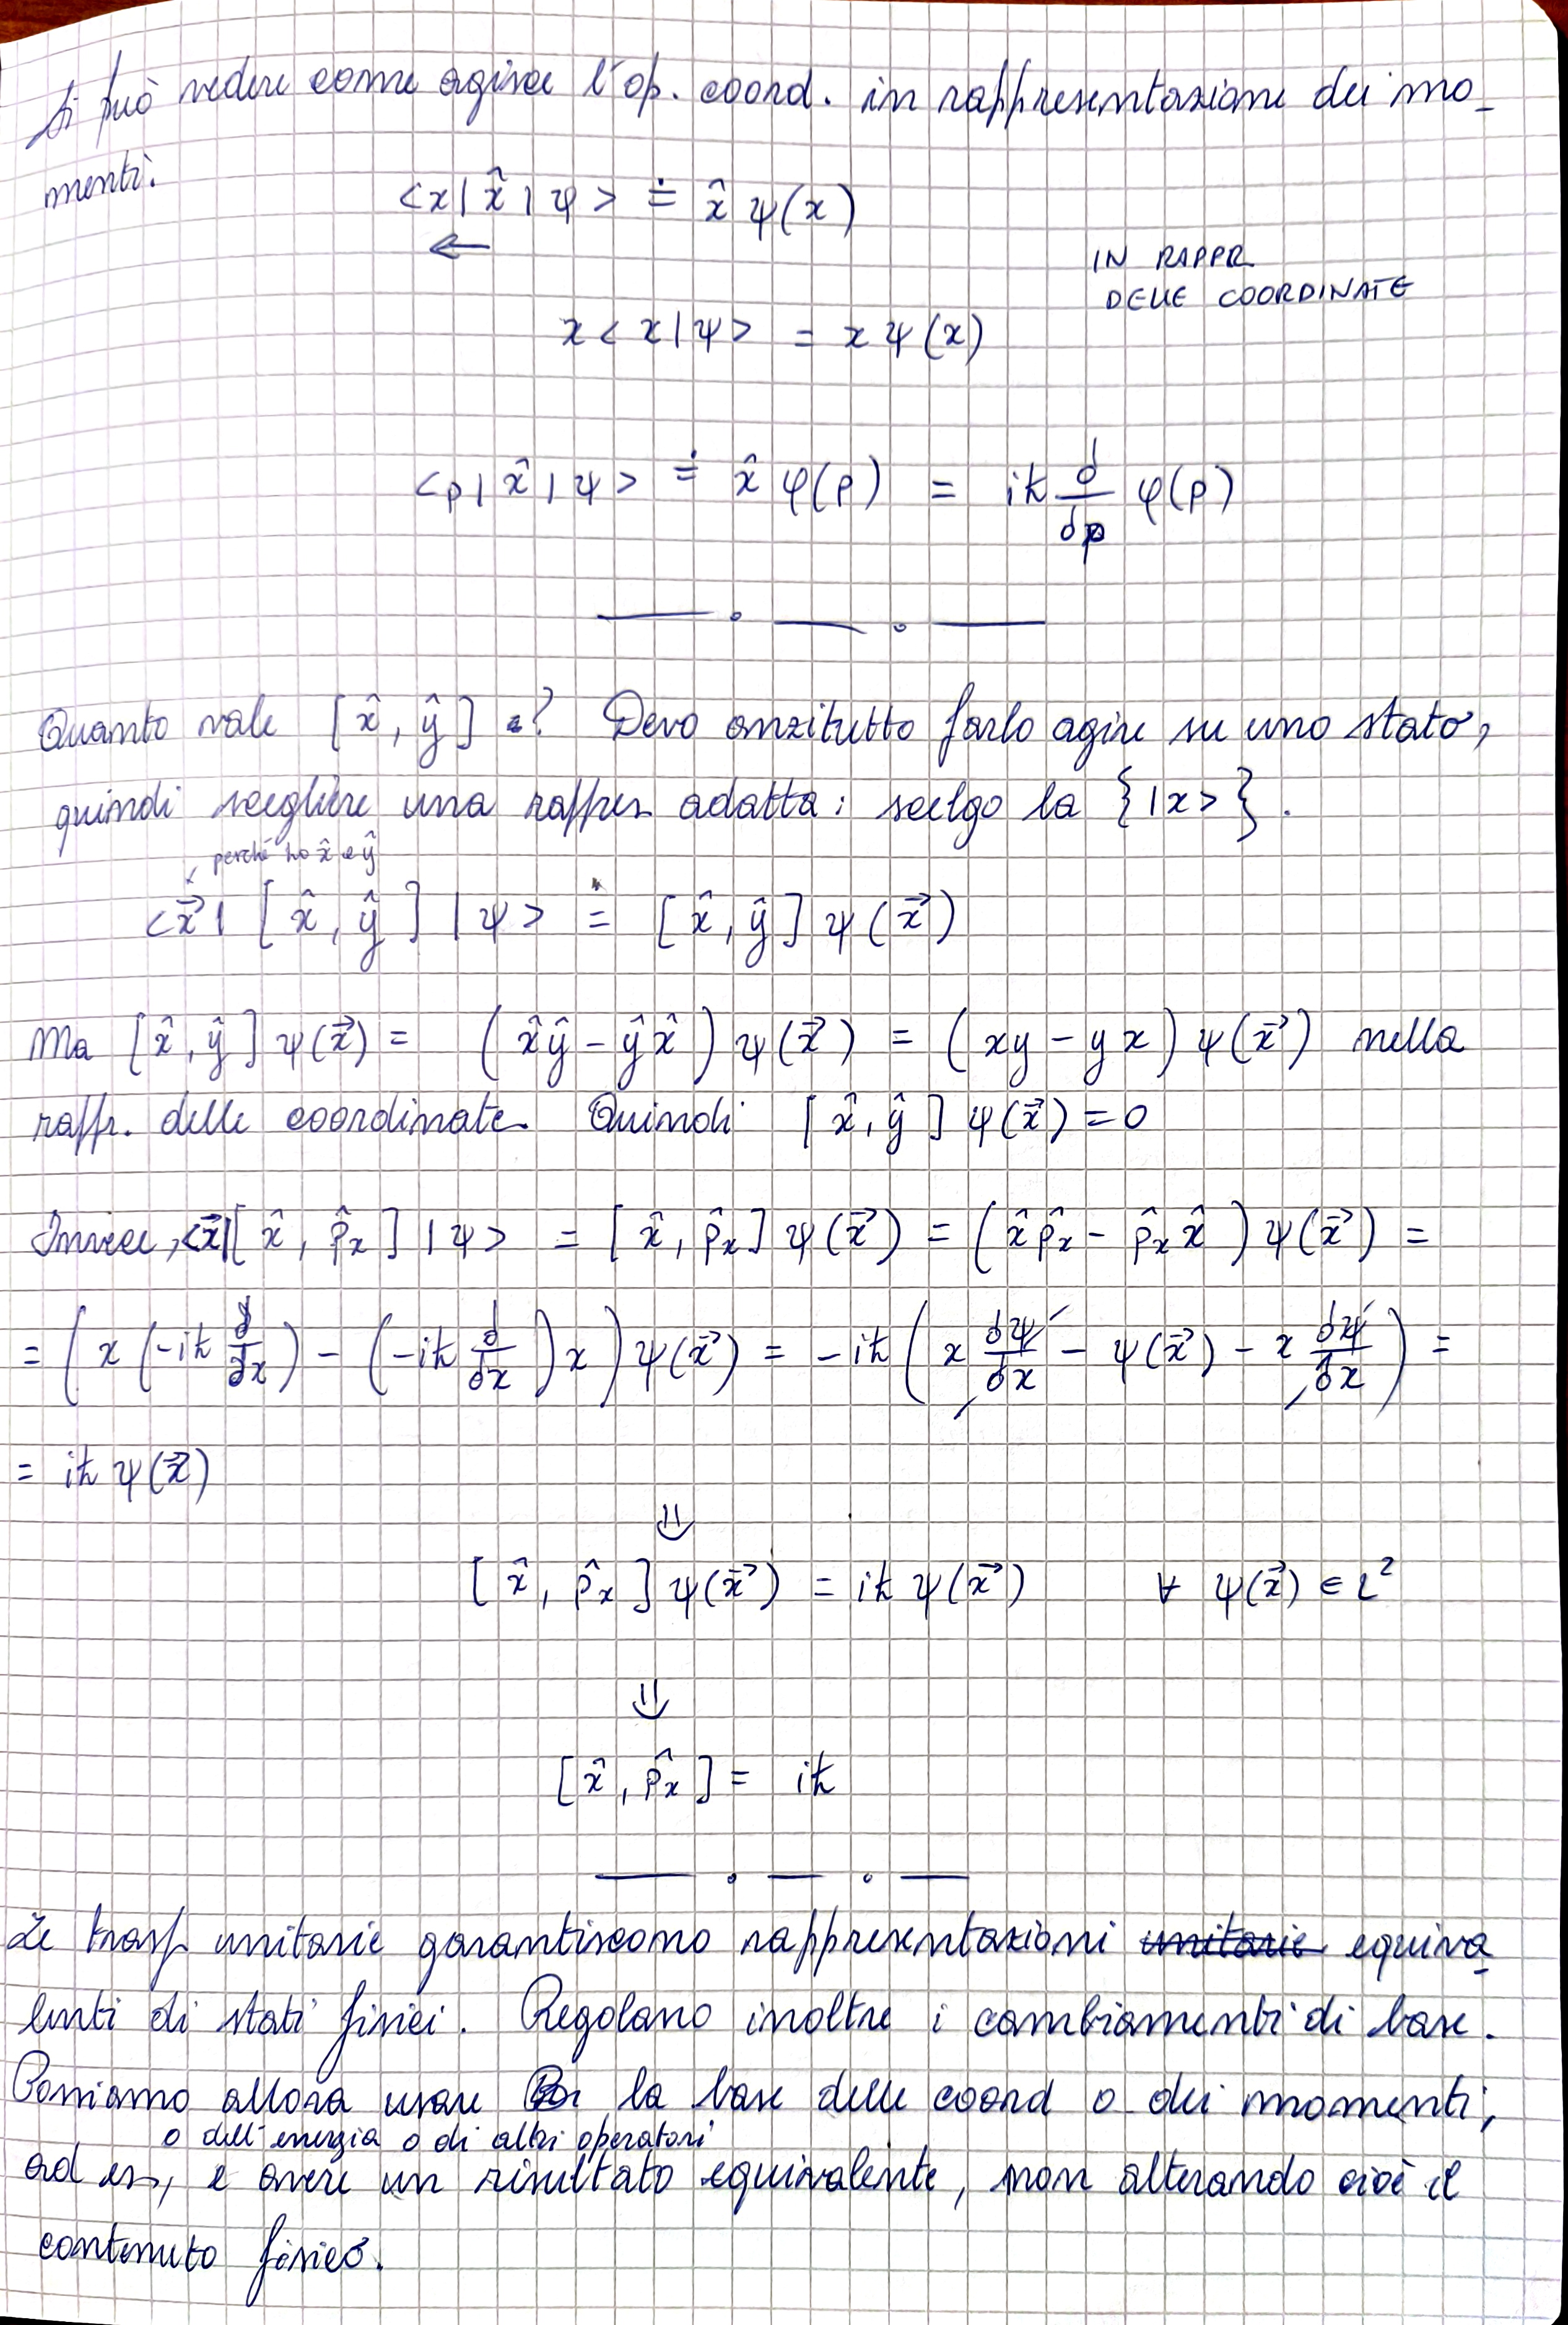 Si può vedere come agisce l'op. coord. in rappresentazione dei mo-
menti.
<x|x̂|ψ> ≐ x̂ ψ(x)
←
IN RAPPR
DELLE COORDINATE
x<x|ψ> = xψ(x)
<p|x̂|ψ> ≐ x̂ φ(p) = iħ d/dp φ(p)
Quanto vale [x̂, ŷ]? Devo anzitutto farlo agire su uno stato,
quindi scegliere una rappres. adatta: scelgo la {|x>}.
perché ho x̂ e ŷ
<x⃗|[x̂, ŷ]|ψ> ≐ [x̂, ŷ] ψ(x⃗)
Ma [x̂, ŷ] ψ(x⃗) = (x̂ŷ - ŷx̂) ψ(x⃗) = (xy - yx) ψ(x⃗) nella
rappr. delle coordinate. Quindi [x̂, ŷ] ψ(x⃗) = 0
Invece, <x⃗|[x̂, p̂ₓ]|ψ> = [x̂, p̂ₓ] ψ(x⃗) = (x̂p̂ₓ - p̂ₓx̂) ψ(x⃗) =
= (x(-iħ d/dx) - (-iħ d/dx)x) ψ(x⃗) = -iħ(x dψ/dx - ψ(x⃗) - x dψ/dx) =
= iħ ψ(x⃗)
⇓
[x̂, p̂ₓ] ψ(x⃗) = iħ ψ(x⃗) ∀ ψ(x⃗) ∈ L²
⇓
[x̂, p̂ₓ] = iħ
Le trasf unitarie garantiscono rappresentazioni unitarie equiva-
lenti di stati fisici. Regolano inoltre i cambiamenti di base.
Possiamo allora usare la base delle coord o dei momenti,
o dell'energia o di altri operatori
ad es, e avere un risultato equivalente, non alterando cioè il
contenuto fisico.